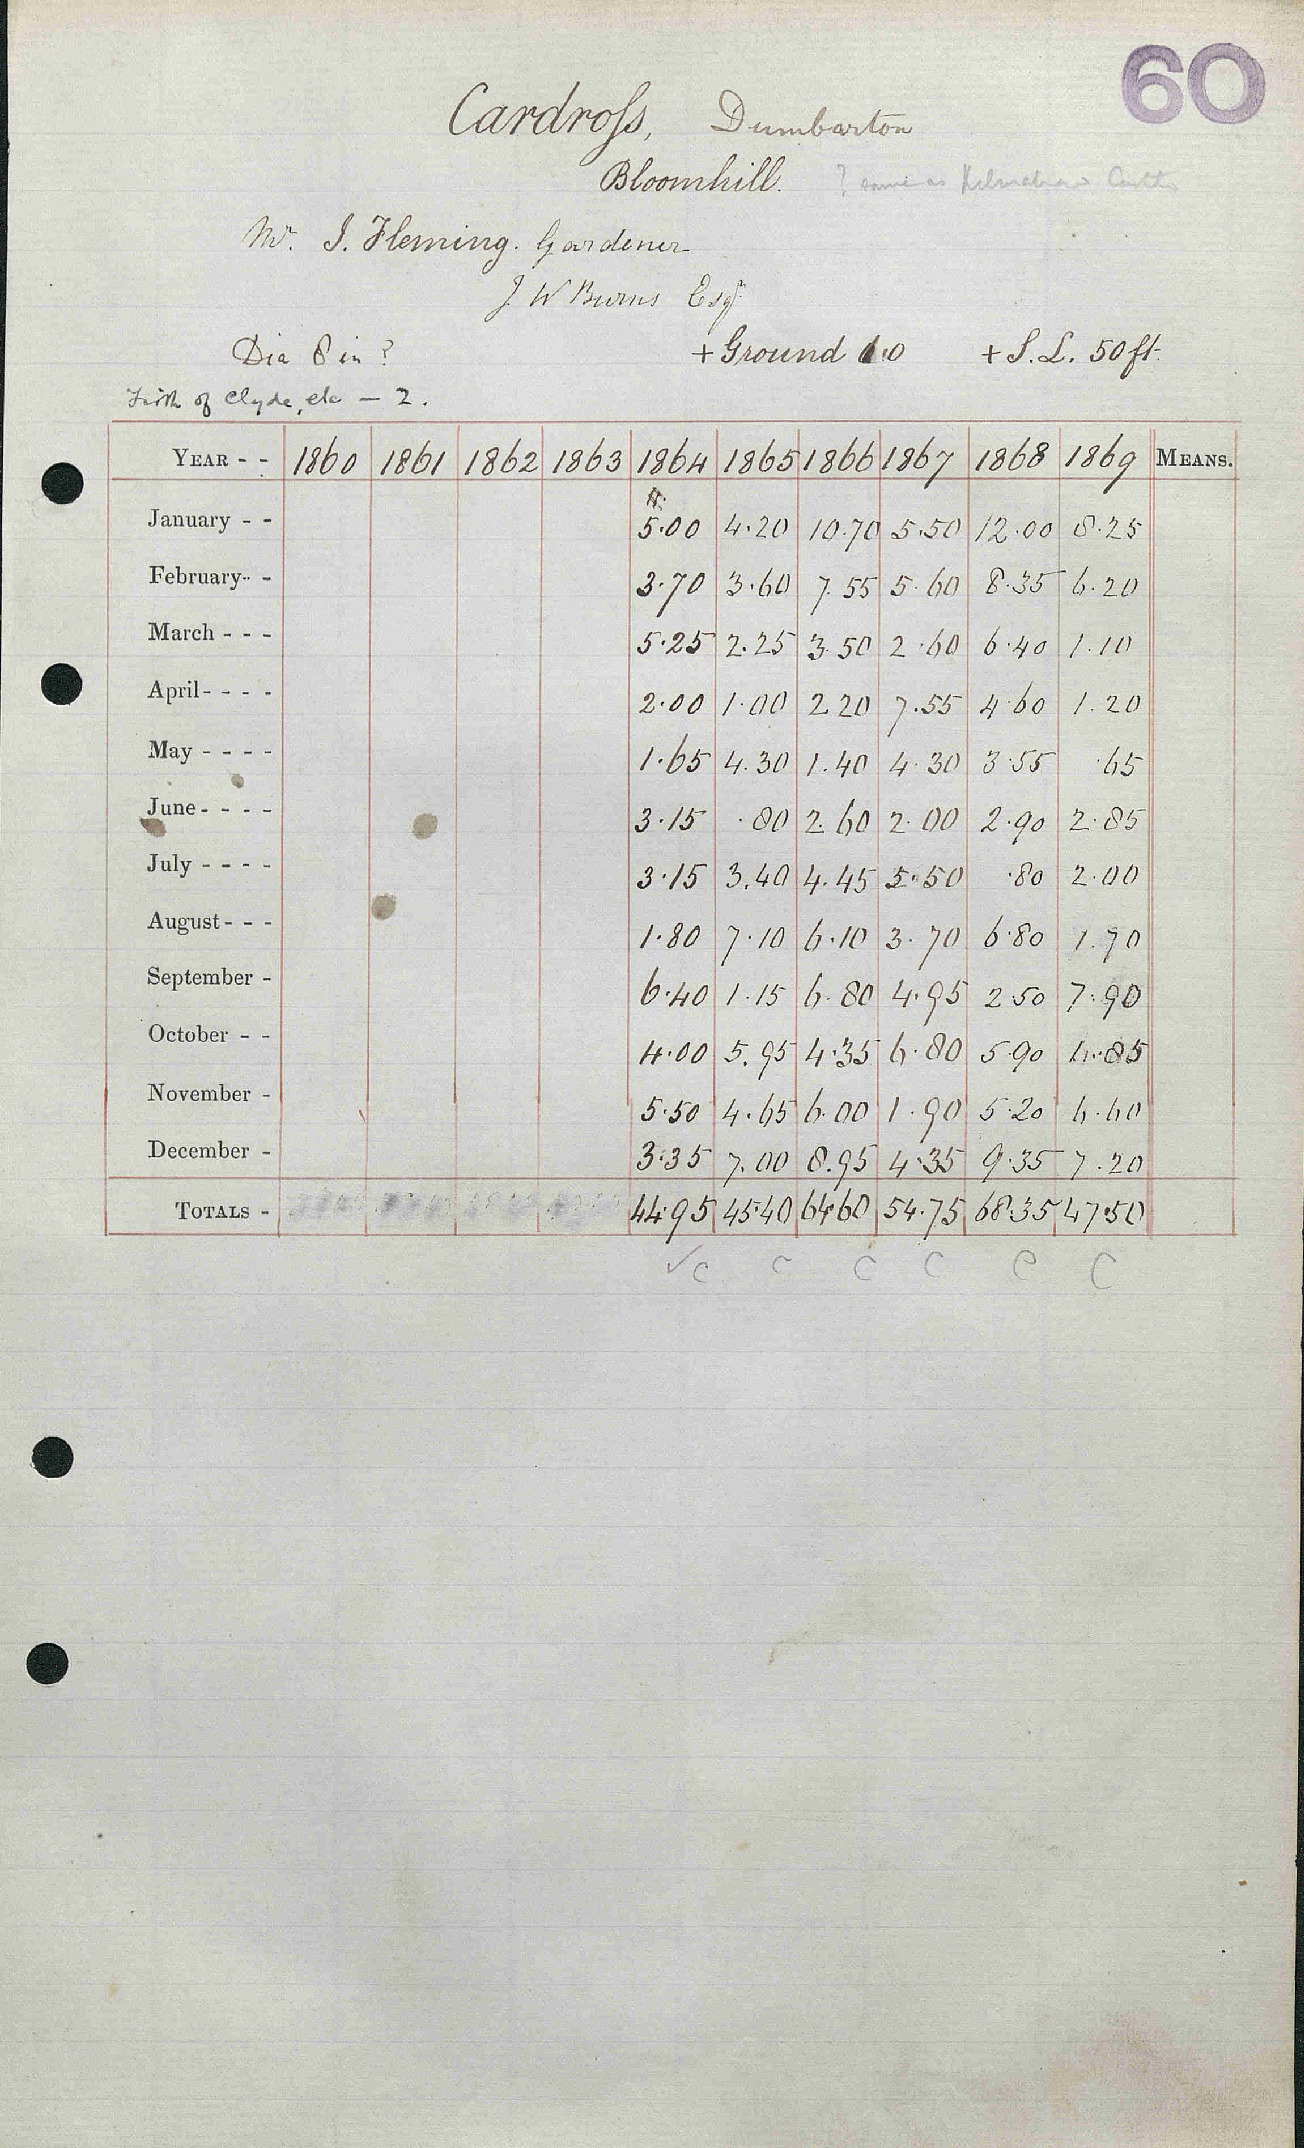 60
Cardroſs, Dumbarton
Bloomhill. ? same as
Mr. J. Fleming. Gardener
J W Burns Esqr
Dia 8 in ? + Ground 1.0 + S.L. 50 ft.
Firth of Clyde, etc — 2.
YEAR - - 1860 1861 1862 1863 1864 1865 1866 1867 1868 1869 MEANS.
January - - 5.00 4.20 10.70 5.50 12.00 8.25
February - - 3.70 3.60 7.55 5.60 8.35 6.20
March - - - 5.25 2.25 3.50 2.60 6.40 1.10
April - - - - 2.00 1.00 2.20 7.55 4.60 1.20
May - - - - 1.65 4.30 1.40 4.30 3.55 .65
June - - - - 3.15 .80 2.60 2.00 2.90 2.85
July - - - - 3.15 3.40 4.45 5.50 .80 2.00
August - - - 1.80 7.10 6.10 3.70 6.80 1.70
September - 6.40 1.15 6.80 4.95 2.50 7.90
October - - 4.00 5.95 4.35 6.80 5.90
November - 5.50 4.65 6.00 1.90 5.20 6.60
December - 3.35 7.00 8.95 4.35 9.35 7.20
TOTALS - 44.95 45.40 64.60 54.75 68.35 47.50
✓c c c c c c